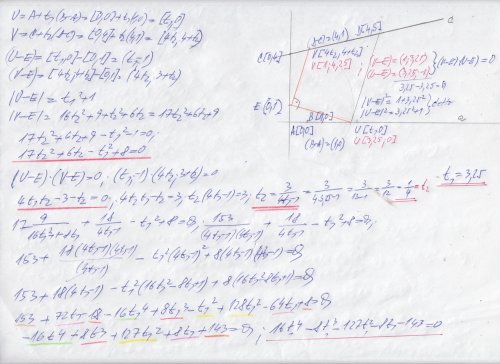 U = A + t₁(B-A) = [0,0] + t₁(1,0) = [t₁,0]
V = C + t₂(D-C) = [0,4] + t₂(4,1) = [4t₂, 4+t₂]
(U-E) = [t₁,0] - [0,1] = (t₁,-1)
(V-E) = [4t₂, 4+t₂] - [0,1] = (4t₂, 3+t₂)
|U-E| = t₁²+1
|V-E| = 16t₂² + 9 + t₂² + 6t₂ = 17t₂² + 6t₂ + 9
17t₂² + 6t₂ + 9 - t₁² - 1 = 0;
17t₂² + 6t₂ - t₁² + 8 = 0;
(U-E)·(V-E) = 0; (t₁,-1)(4t₂, 3+t₂) = 0
4t₁t₂ - 3 - t₂ = 0; 4t₁t₂ - t₂ = 3; t₂(4t₁-1) = 3; t₂ = 3/(4t₁-1) = 3/(4·3,25-1) = 3/(13-1) = 3/12 = 1/4 = t₂
t₁ = 3,25
17 9/(16t₁²-8t₁+1) + 18/(4t₁-1) - t₁² + 8 = 0; 153/((4t₁-1)(4t₁-1)) + 18/(4t₁-1) - t₁² + 8 = 0;
153 + 18(4t₁-1)(4t₁-1)/(4t₁-1) - t₁²(4t₁-1)² + 8(4t₁-1)(4t₁-1) = 0;
153 + 18(4t₁-1) - t₁²(16t₁²-8t₁+1) + 8(16t₁²-8t₁+1) = 0;
153 + 72t₁ - 18 - 16t₁⁴ + 8t₁³ - t₁² + 128t₁² - 64t₁ + 8 = 0;
-16t₁⁴ + 8t₁³ + 127t₁² + 8t₁ + 143 = 0; 16t⁴ - 8t³ - 127t² - 8t - 143 = 0
C[0,4]
(D-C) = (4,1)
V[4t₂, 4+t₂]
V[1; 4,25]
D[4,5]
E[0,1]
B[1,0]
A[0,0]
(B-A) = (1,0)
U[t₁,0]
U[3,25; 0]
(V-E) = (1; 3,25)
(U-E) = (3,25; -1)
(V-E)·(U-E) = 0
3,25 - 3,25 = 0
|V-E|² = 1 + 3,25²
|U-E|² = 3,25² + 1